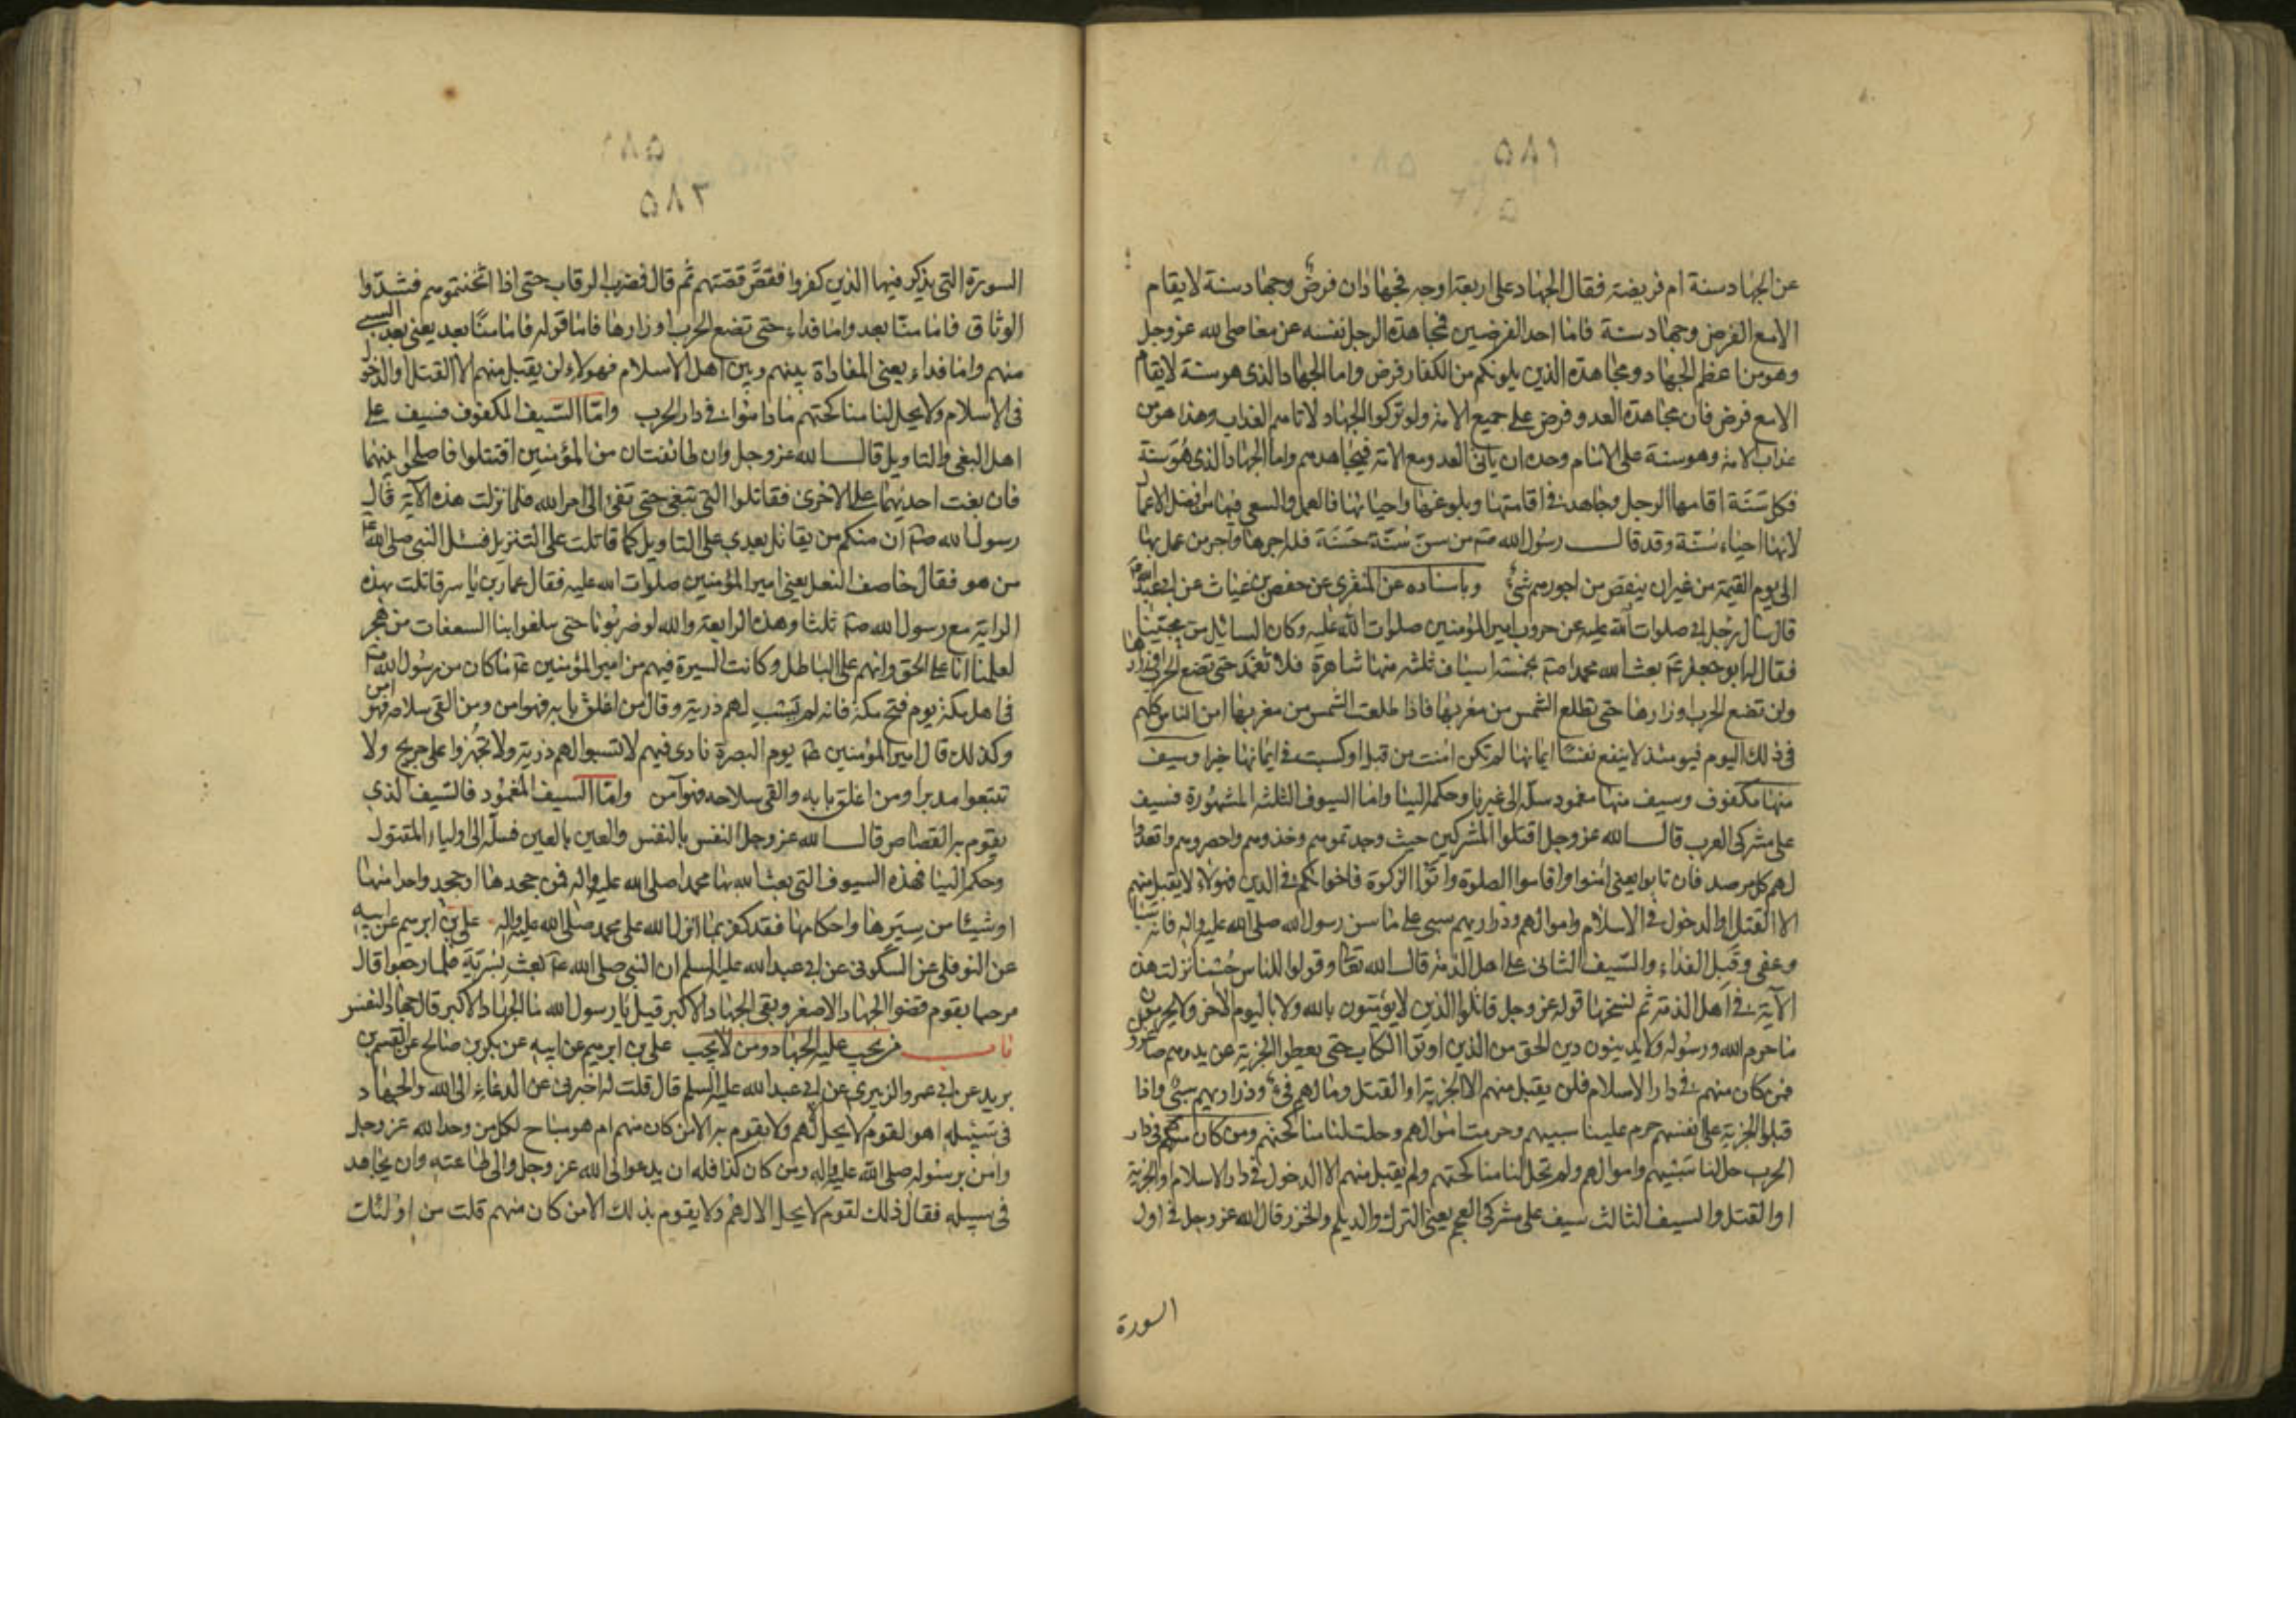 ۵۸۱
عن الجهاد سنة ام فريضة فقال الجهاد على اربعة اوجه فجهادان فرض وجهاد سنة لايقام
الامع الفرض وجهاد سنة فاما احد الفرضين فجاهدة الرجل نفسه عن معاصى لله عز وجل
وهو من اعظم الجهاد ومجاهدة الذين يلونكم من الكفار فرض واما الجهاد الذى هو سنة لايقام
الامع فرض فان مجاهدة العدو فرض على جميع الامة ولو تركوا الجهاد لاتاهم العذاب وهذا هو من
عذاب الامة وهو سنة على الامام وحده ان ياتى العدو مع الامة فيجاهدهم واما الجهاد الذى هو سنة
فكل سنة اقامها الرجل وجاهد فى اقامتها وبلوغها واحيائها فالعمل والسعى فيها من افضل الاعمال
لانها احياء سنة وقد قال رسول الله صم من سن سنة حسنة فله اجرها واجر من عمل بها
الى يوم القيمة من غير ان ينقص من اجورهم شئ وباسناده عن المنقرى عن حفص بن غياث عن ابى عبد الله ع
قال سال رجل ابى صلوات الله عليه عن حروب امير المؤمنين صلوات الله عليه وكان السائل من محبينا
فقال له ابو جعفر ع بعث الله محمدا صم بخمسة اسياف ثلثة منها شاهرة فلا تغمد حتى تضع الحرب اوزارها
ولن تضع الحرب اوزارها حتى تطلع الشمس من مغربها فاذا طلعت الشمس من مغربها امن الناس كلهم
فى ذلك اليوم فيومئذ لاينفع نفسا ايمانها لم تكن امنت من قبل اوكسبت فى ايمانها خيرا وسيف
منها مكفوف وسيف منها مغمود سله الى غيرنا وحكمه الينا واما السيوف الثلثة المشهورة فسيف
على مشركى العرب قال الله عز وجل اقتلوا المشركين حيث وجدتموهم وخذوهم واحصروهم واقعدوا
لهم كل مرصد فان تابوا يعنى امنوا واقاموا الصلوة واتوا الزكوة فاخوانكم فى الدين فهؤلاء لايقبل منهم
الا القتل او الدخول فى الاسلام واموالهم وذراريهم سبى على ما سن رسول الله صلى الله عليه واله فانه سبا
وعفى وقبل الفداء والسيف الثانى على اهل الذمة قال الله تعا وقولوا للناس حسنا نزلت هذه
الآية فى اهل الذمة ثم نسخها قوله عز وجل قاتلوا الذين لايؤمنون بالله ولا باليوم الاخر ولايحرمون
ما حرم الله ورسوله ولا يدينون دين الحق من الذين اوتوا الكتاب حتى يعطوا الجزية عن يد وهم صاغرون
فمن كان منهم فى دار الاسلام فلن يقبل منهم الا الجزية او القتل ومالهم فئ وذراريهم سبى واذا
قبلوا الجزية على انفسهم حرم علينا سبيهم وحرمت اموالهم وحلت لنا مناكحتهم ومن كان منهم فى دار
الحرب حل لنا سبيهم واموالهم ولم تحل لنا مناكحتهم ولم يقبل منهم الا الدخول فى دار الاسلام والجزية
او القتل والسيف الثالث سيف على مشركى العجم يعنى الترك والديلم والخزر قال الله عز وجل فى اول
السورة
۵۸۲
السورة التى يذكر فيها الذين كفروا فقص قصتهم ثم قال فضرب الرقاب حتى اذا اثخنتموهم فشدوا
الوثاق فاما منا بعد واما فداء حتى تضع الحرب اوزارها فاما قوله فاما منا بعد يعنى بعد السبى
منهم واما فداء يعنى المفاداة بينهم وبين اهل الاسلام فهولاء لن يقبل منهم الا القتل او الدخول
فى الاسلام ولايحل لنا مناكحتهم ما داموا فى دار الحرب واما السيف المكفوف فسيف على
اهل البغى والتاويل قال الله عز وجل وان طائفتان من المؤمنين اقتتلوا فاصلحوا بينهما
فان بغت احديهما على الاخرى فقاتلوا التى تبغى حتى تفئ الى امر الله فلما نزلت هذه الآية قال
رسول الله صم ان منكم من يقاتل بعدى على التاويل كما قاتلت على التنزيل فسئل النبى صلى الله عليه
من هو فقال خاصف النعل يعنى امير المؤمنين صلوات الله عليه فقال عمار بن ياسر قاتلت بهذه
الراية مع رسول الله صم ثلثا وهذه الرابعة والله لو ضربونا حتى يبلغوا بنا السعفات من هجر
لعلمنا انا على الحق وانهم على الباطل وكانت السيرة فيهم من امير المؤمنين ع ما كان من رسول الله صم
فى اهل مكة يوم فتح مكة فانه لم يسب لهم ذرية وقال من اغلق بابه فهو امن ومن القى سلاحه فهو امن
وكذلك قال امير المؤمنين ع يوم البصرة نادى فيهم لا تسبوا لهم ذرية ولا تجهزوا على جريح ولا
تتبعوا مدبرا ومن اغلق بابه والقى سلاحه فهو آمن واما السيف المغمود فالسيف الذى
يقوم به القصاص قال الله عز وجل النفس بالنفس والعين بالعين فسله الى اولياء المقتول
وحكمه الينا فهذه السيوف التى بعث الله بها محمدا صلى الله عليه واله فمن جحدها او جحد واحدا منها
او شيئا من سيرها واحكامها فقد كفر بما انزل الله على محمد صلى الله عليه واله على بن ابرهيم عن ابيه
عن النوفلى عن السكونى عن ابى عبد الله عليه السلم ان النبى صلى الله ع بعث بسرية فلما رجعوا قال
مرحبا بقوم قضوا الجهاد الاصغر وبقى الجهاد الاكبر قيل يا رسول الله ما الجهاد الاكبر قال جهاد النفس
باب من يجب عليه الجهاد ومن لايجب على بن ابرهيم عن ابيه عن بكر بن صالح عن القسم بن
بريد عن ابى عمرو الزبيرى عن ابى عبد الله عليه السلم قال قلت له اخبرنى عن الدعاء الى الله والجهاد
فى سبيله اهو لقوم لايحل الا لهم ولا يقوم به الا من كان منهم ام هو مباح لكل من وحد الله عز وجل
وامن برسوله صلى الله عليه واله ومن كان كذا فله ان يدعو الى الله عز وجل والى طاعته وان يجاهد
فى سبيله فقال ذلك لقوم لايحل الا لهم ولا يقوم بذلك الا من كان منهم قلت من اولئك